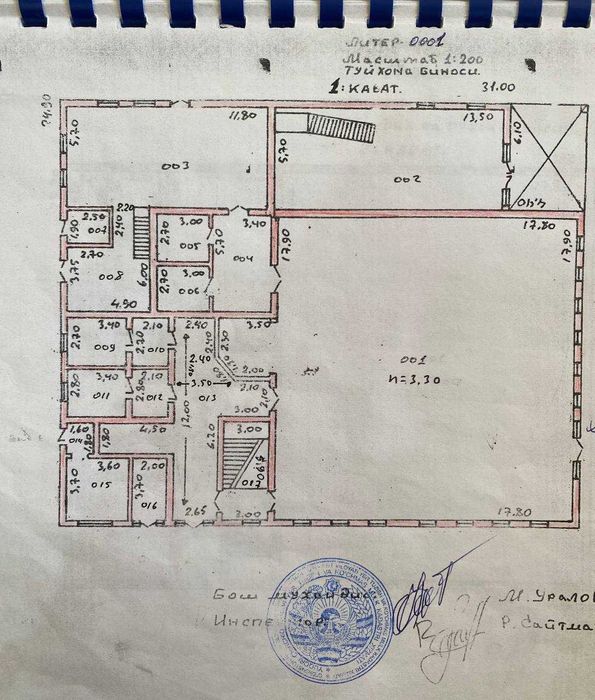 ЛИТЕР. 0001
Масштаб 1:200
ТУЙХОНА БИНОСИ.
1: КАВАТ. 31.00
24.90
11,80 13,50
5,70 5,70 6,10
003 002
4,10
2.20 17.80
2.50 2,40 3.00 3,40
1,90 007 2,70 005 5,70 17,90 17,90
004
2,70 3,00
3,75 008 6,00 2,70 006
4.90
3,40 2,10 2,40 2,90 3,50
2,70 009 2,70 010 2,40
2.40 001
h=3,30
2.00
3,40 2,10 3.50 2,10 2,10
2,80 011 2,80 012 013
12,00 3.00
1,60 4,50 6,20 3.00
014 1,80 1,80
3,60 2,00 017
3,70 015 3,70 016
2.65 2.00 17.80
Бош муҳандис М. Уралов
Инспектор Р. Сайтма